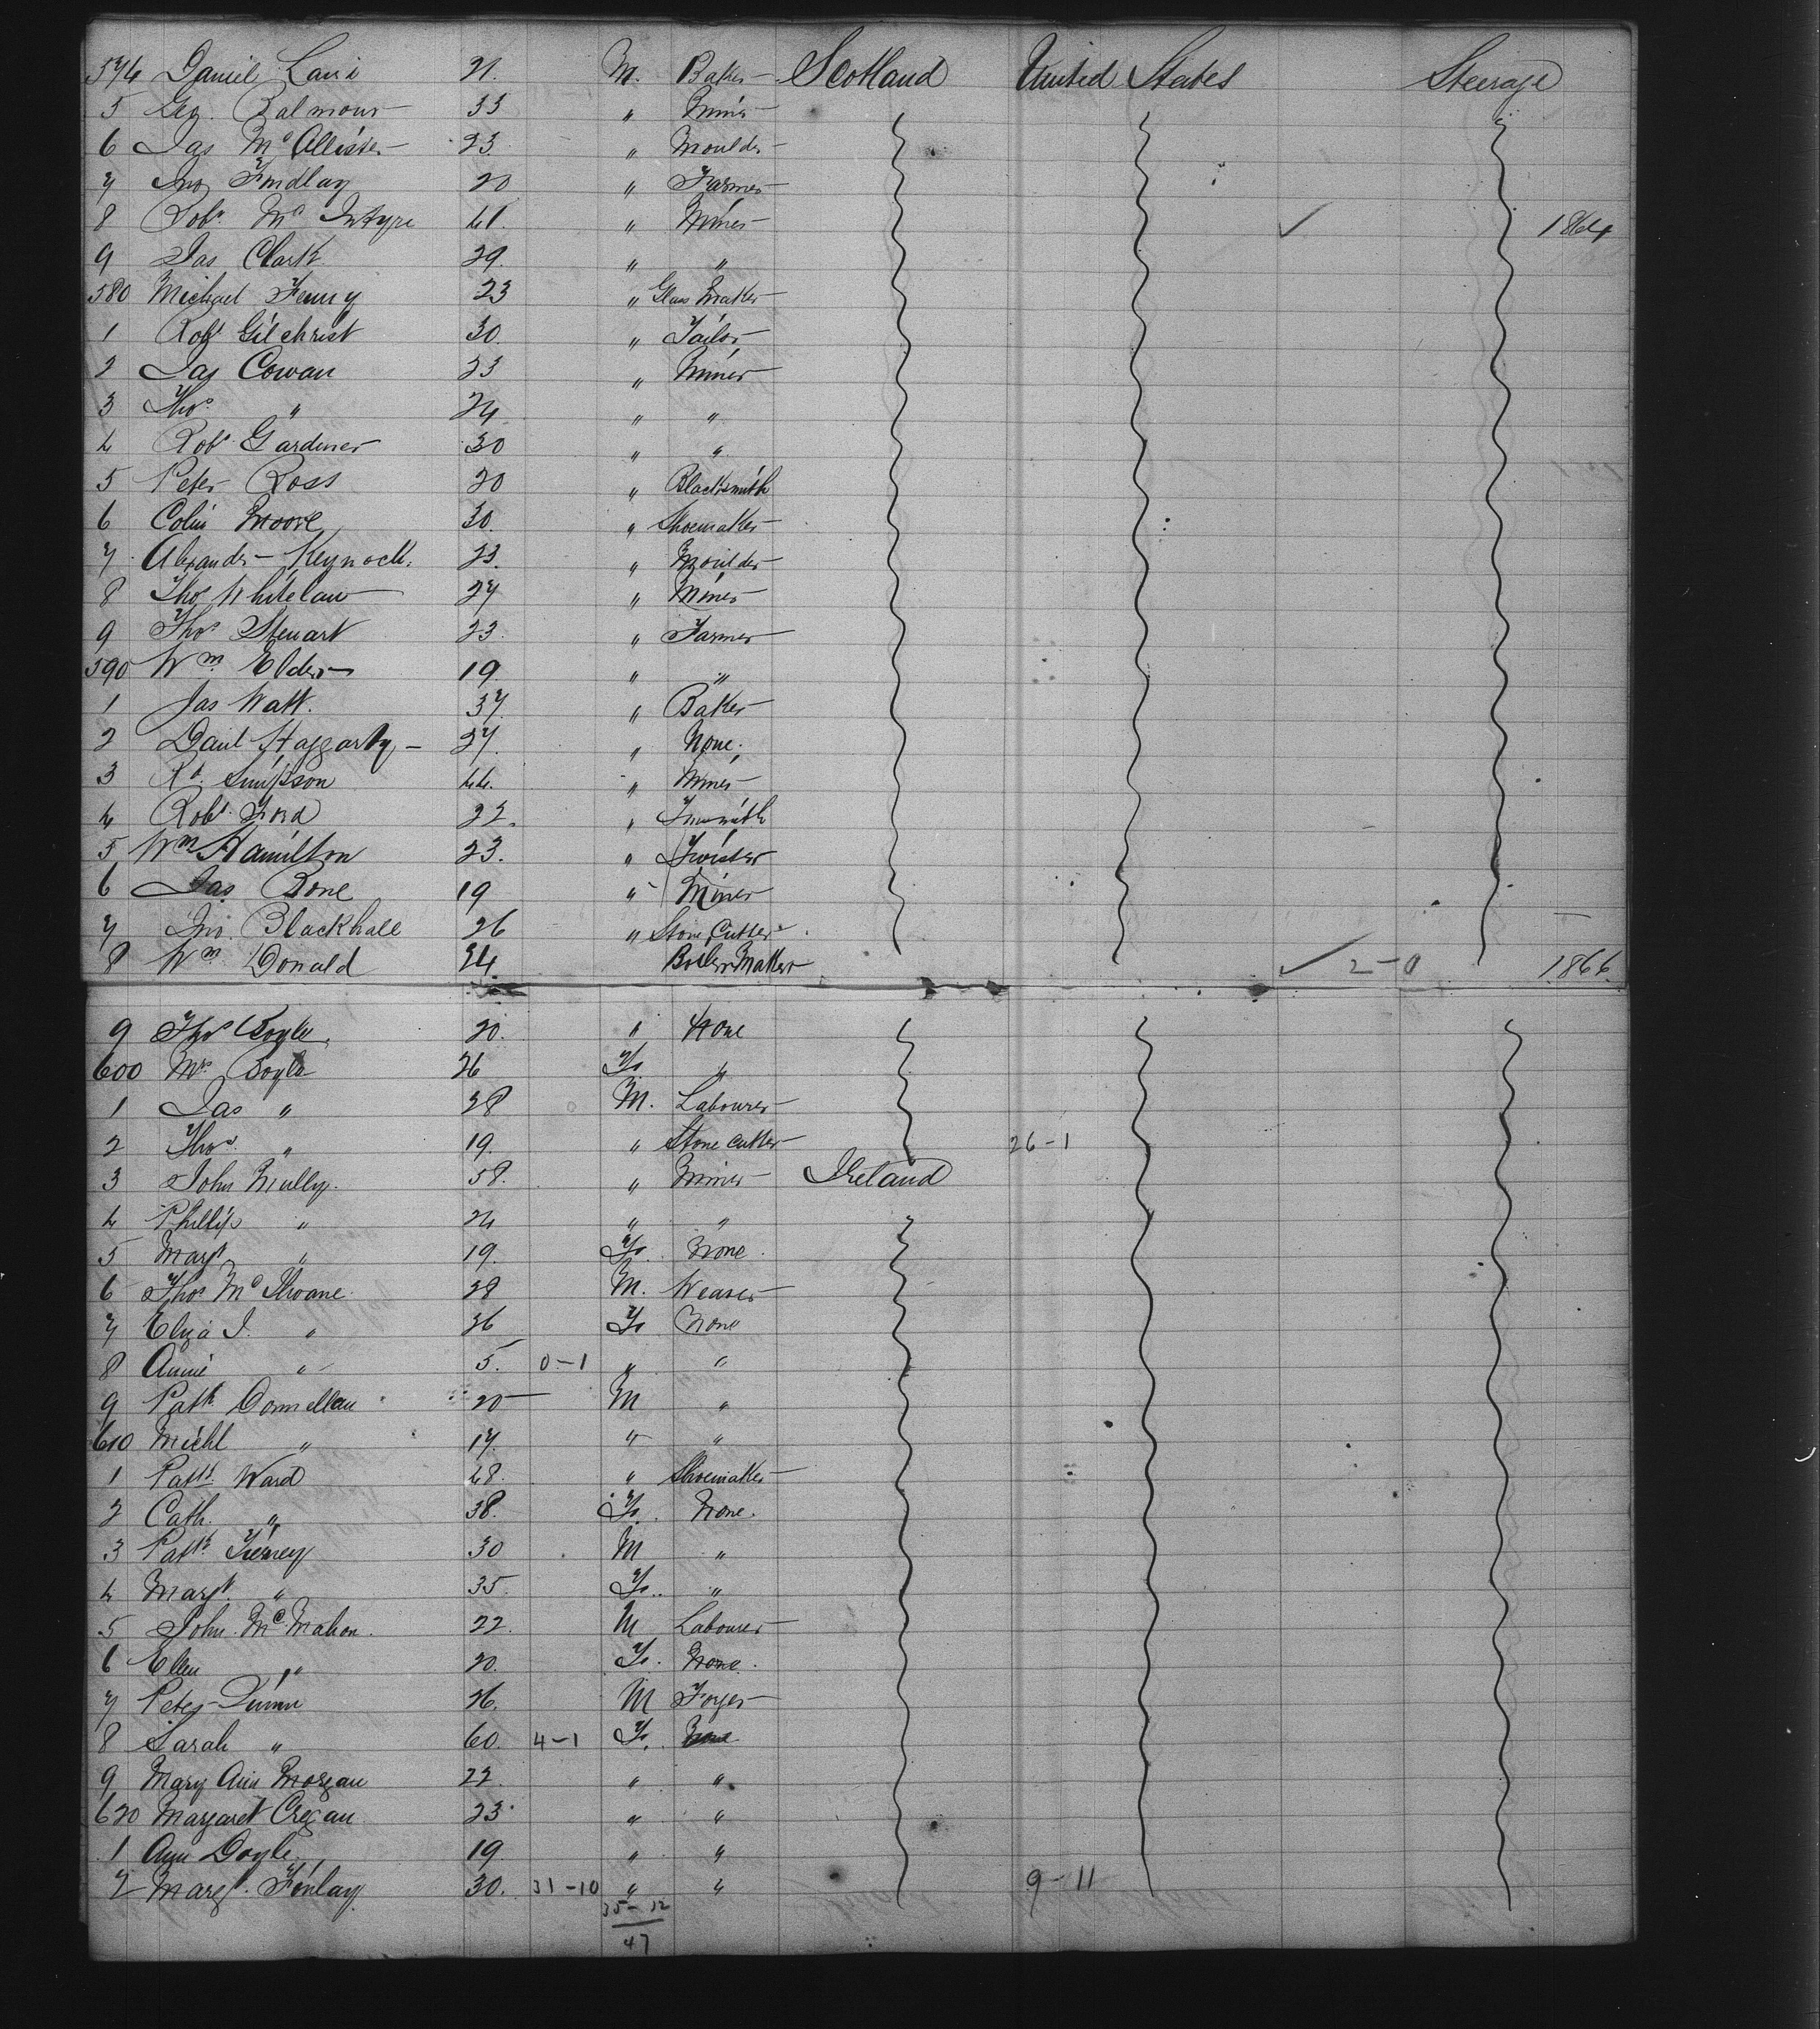 574 Daniel 21. M. Baker Scotland United States Steerage
5 Geo. Balmour 33 " Miner
6 Jas McAllister 23. " Moulder
7 Jno Findlay 20 " Farmer
8 Robt McIntyre 41. " Miner ✓ 1864
9 Jas Clark 29. " "
580 Michael 23 " Glass Maker
1 Robt Gilchrist 30. " Tailor
2 Jas Cowan 23 " Miner
3 Thos " 24 " "
4 Robt Gardener 30 " "
5 Peter Ross 20 " Blacksmith
6 Colin Moore 30. " Shoemaker
7 Alexander Keynock. 23. " Moulder
8 Thos Whitelaw 27 " Miner
9 Thos Stewart 23. " Farmer
590 Wm Elder 19. " "
1 Jas Watt. 37. " Baker
2 Danl Haggarty 27. " None.
3 Rt Simpson 44. " Miner
4 Robt Ford 22. " Tinsmith
5 Wm Hamilton 23. " Twister
6 Jas Bone 19 " Miner
7 Jno. Blackhall 26 " Stone Cutter
8 Wm Donald 34. Boiler Maker ✓ 2-0 1866
9 Thos Boyle. 20. " None
600 Mrs Boyle 26 F. "
1 Jas " 28 M. Labourer
2 Thos " 19. " Stone cutter 26-1
3 John Mully. 58. " Miner Ireland
4 Phillip " 24 " "
5 Margt " 19. F. None.
6 Thos Mc 28 M. Weaver
7 Eliza J. " 26 F. None
8 Annie " 5. 0-1 " "
9 Patk Donnellan 20 M "
610 Michl " 17. " "
1 Patk Ward 48. " Shoemaker
2 Cath. " 38. F. None.
3 Patk Tierney 30 M "
4 Margt " 35. F. "
5 John McMahon. 22. M Labourer
6 Ellen " 20. F. None.
7 Peter Quinn 26. M
8 Sarah " 60. 4-1 F. None
9 Mary Ann Morgan 22. " "
620 Margaret Cregan 23 " "
1 Ann Doyle. 19 " "
2 Margt. Finlay. 30. 31-10 " " 9-11
35-12
47